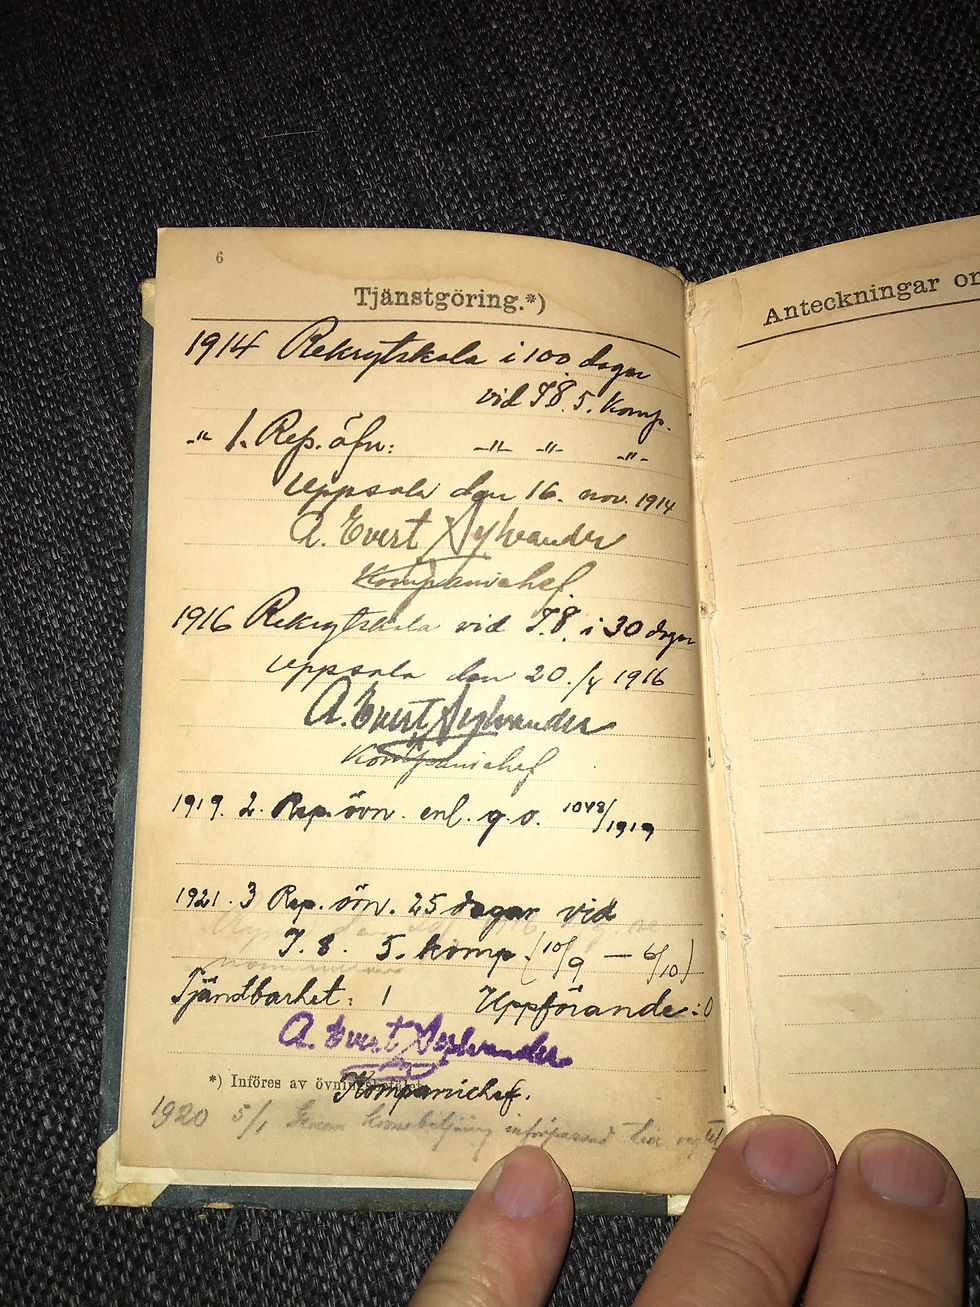 6
Tjänstgöring.*)
1914 Rekrytskola i 100 dagar
vid I.8. 5. komp.
-"- 1. Rep. öfn: -"- -"- -"-
Uppsala den 16. nov. 1914
A. Evert Sylvander
Kompanichef.
1916 Rekrytskola vid I.8. i 30 dagar
Uppsala den 20./4 1916
A. Evert Sylvander
Kompanichef
1919. 2. Rep. övn. enl. g.o. 1048/1919
1921. 3 Rep. övn. 25 dagar vid
I. 8. 5. komp. (10/9 — 6/10)
Tjändbarhet: 1 Uppförande: 0
A. Evert Sylvander
*) Införes av
Kompanichef.
1920 5/1
Anteckningar